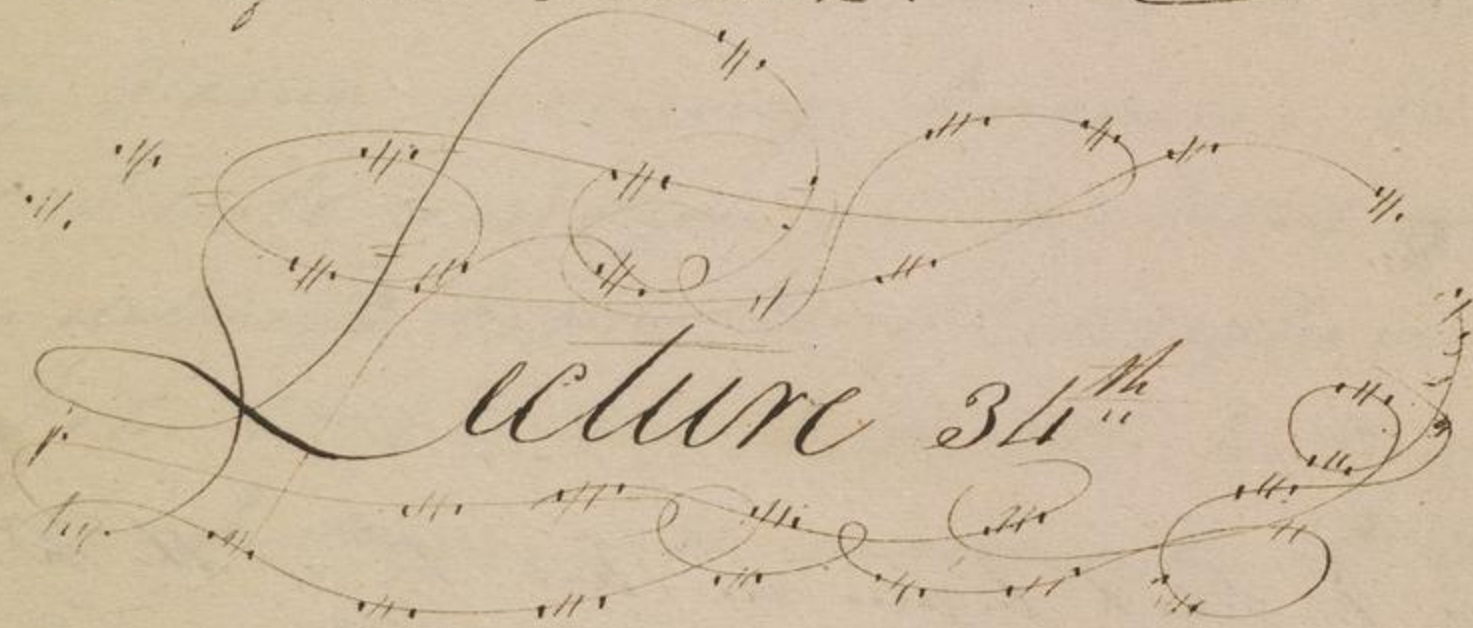 Lecture 34th